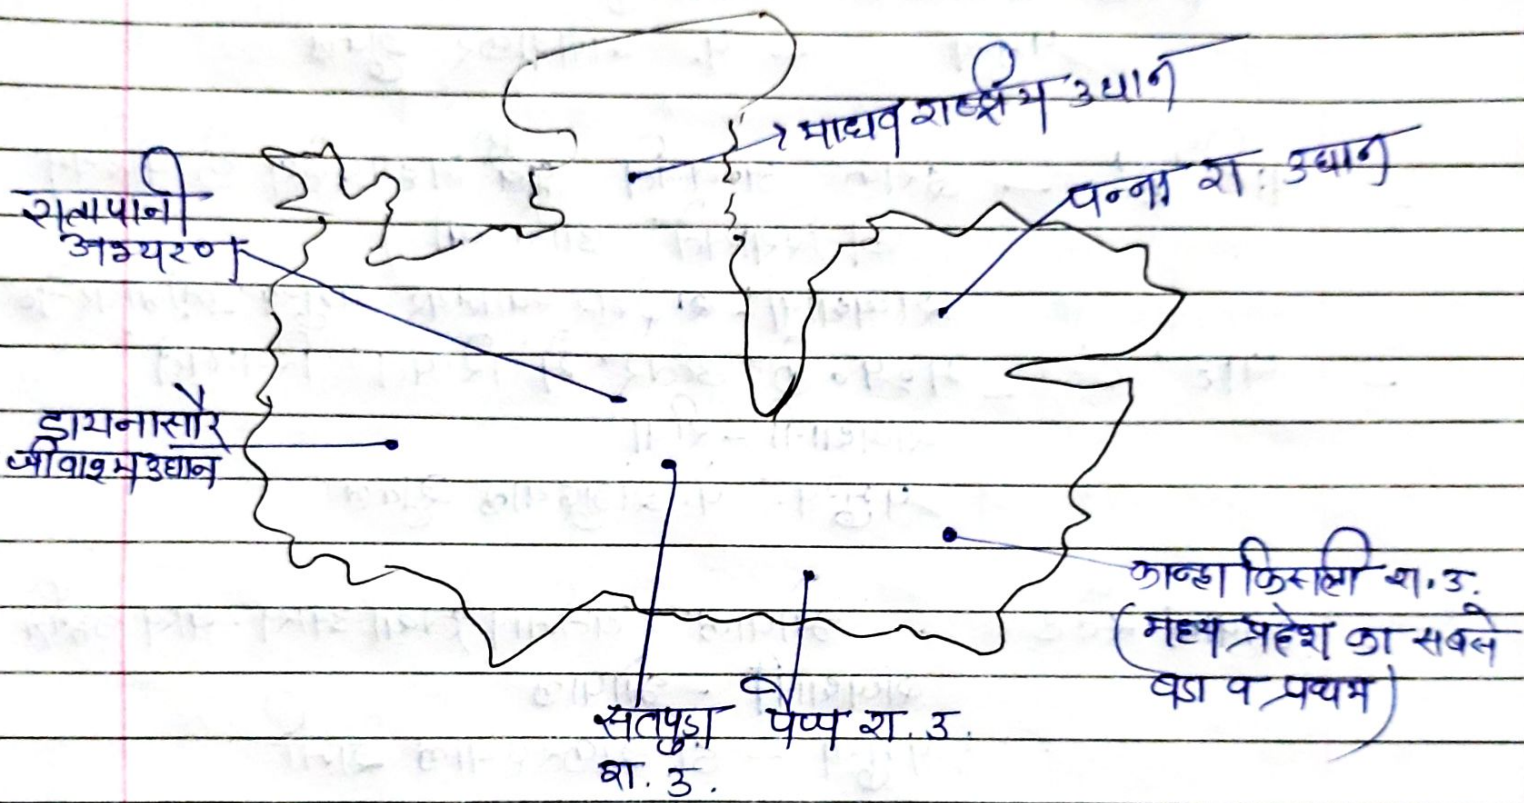 माधव राष्ट्रीय उद्यान
पन्ना रा. उद्यान
रातापानी
अभ्यरण
डायनासौर
जीवाश्म उद्यान
कान्हा किसली रा.उ.
(मध्य प्रदेश का सबसे
बडा व प्रथम)
सतपुड़ा
रा. उ.
पेंच रा. उ.